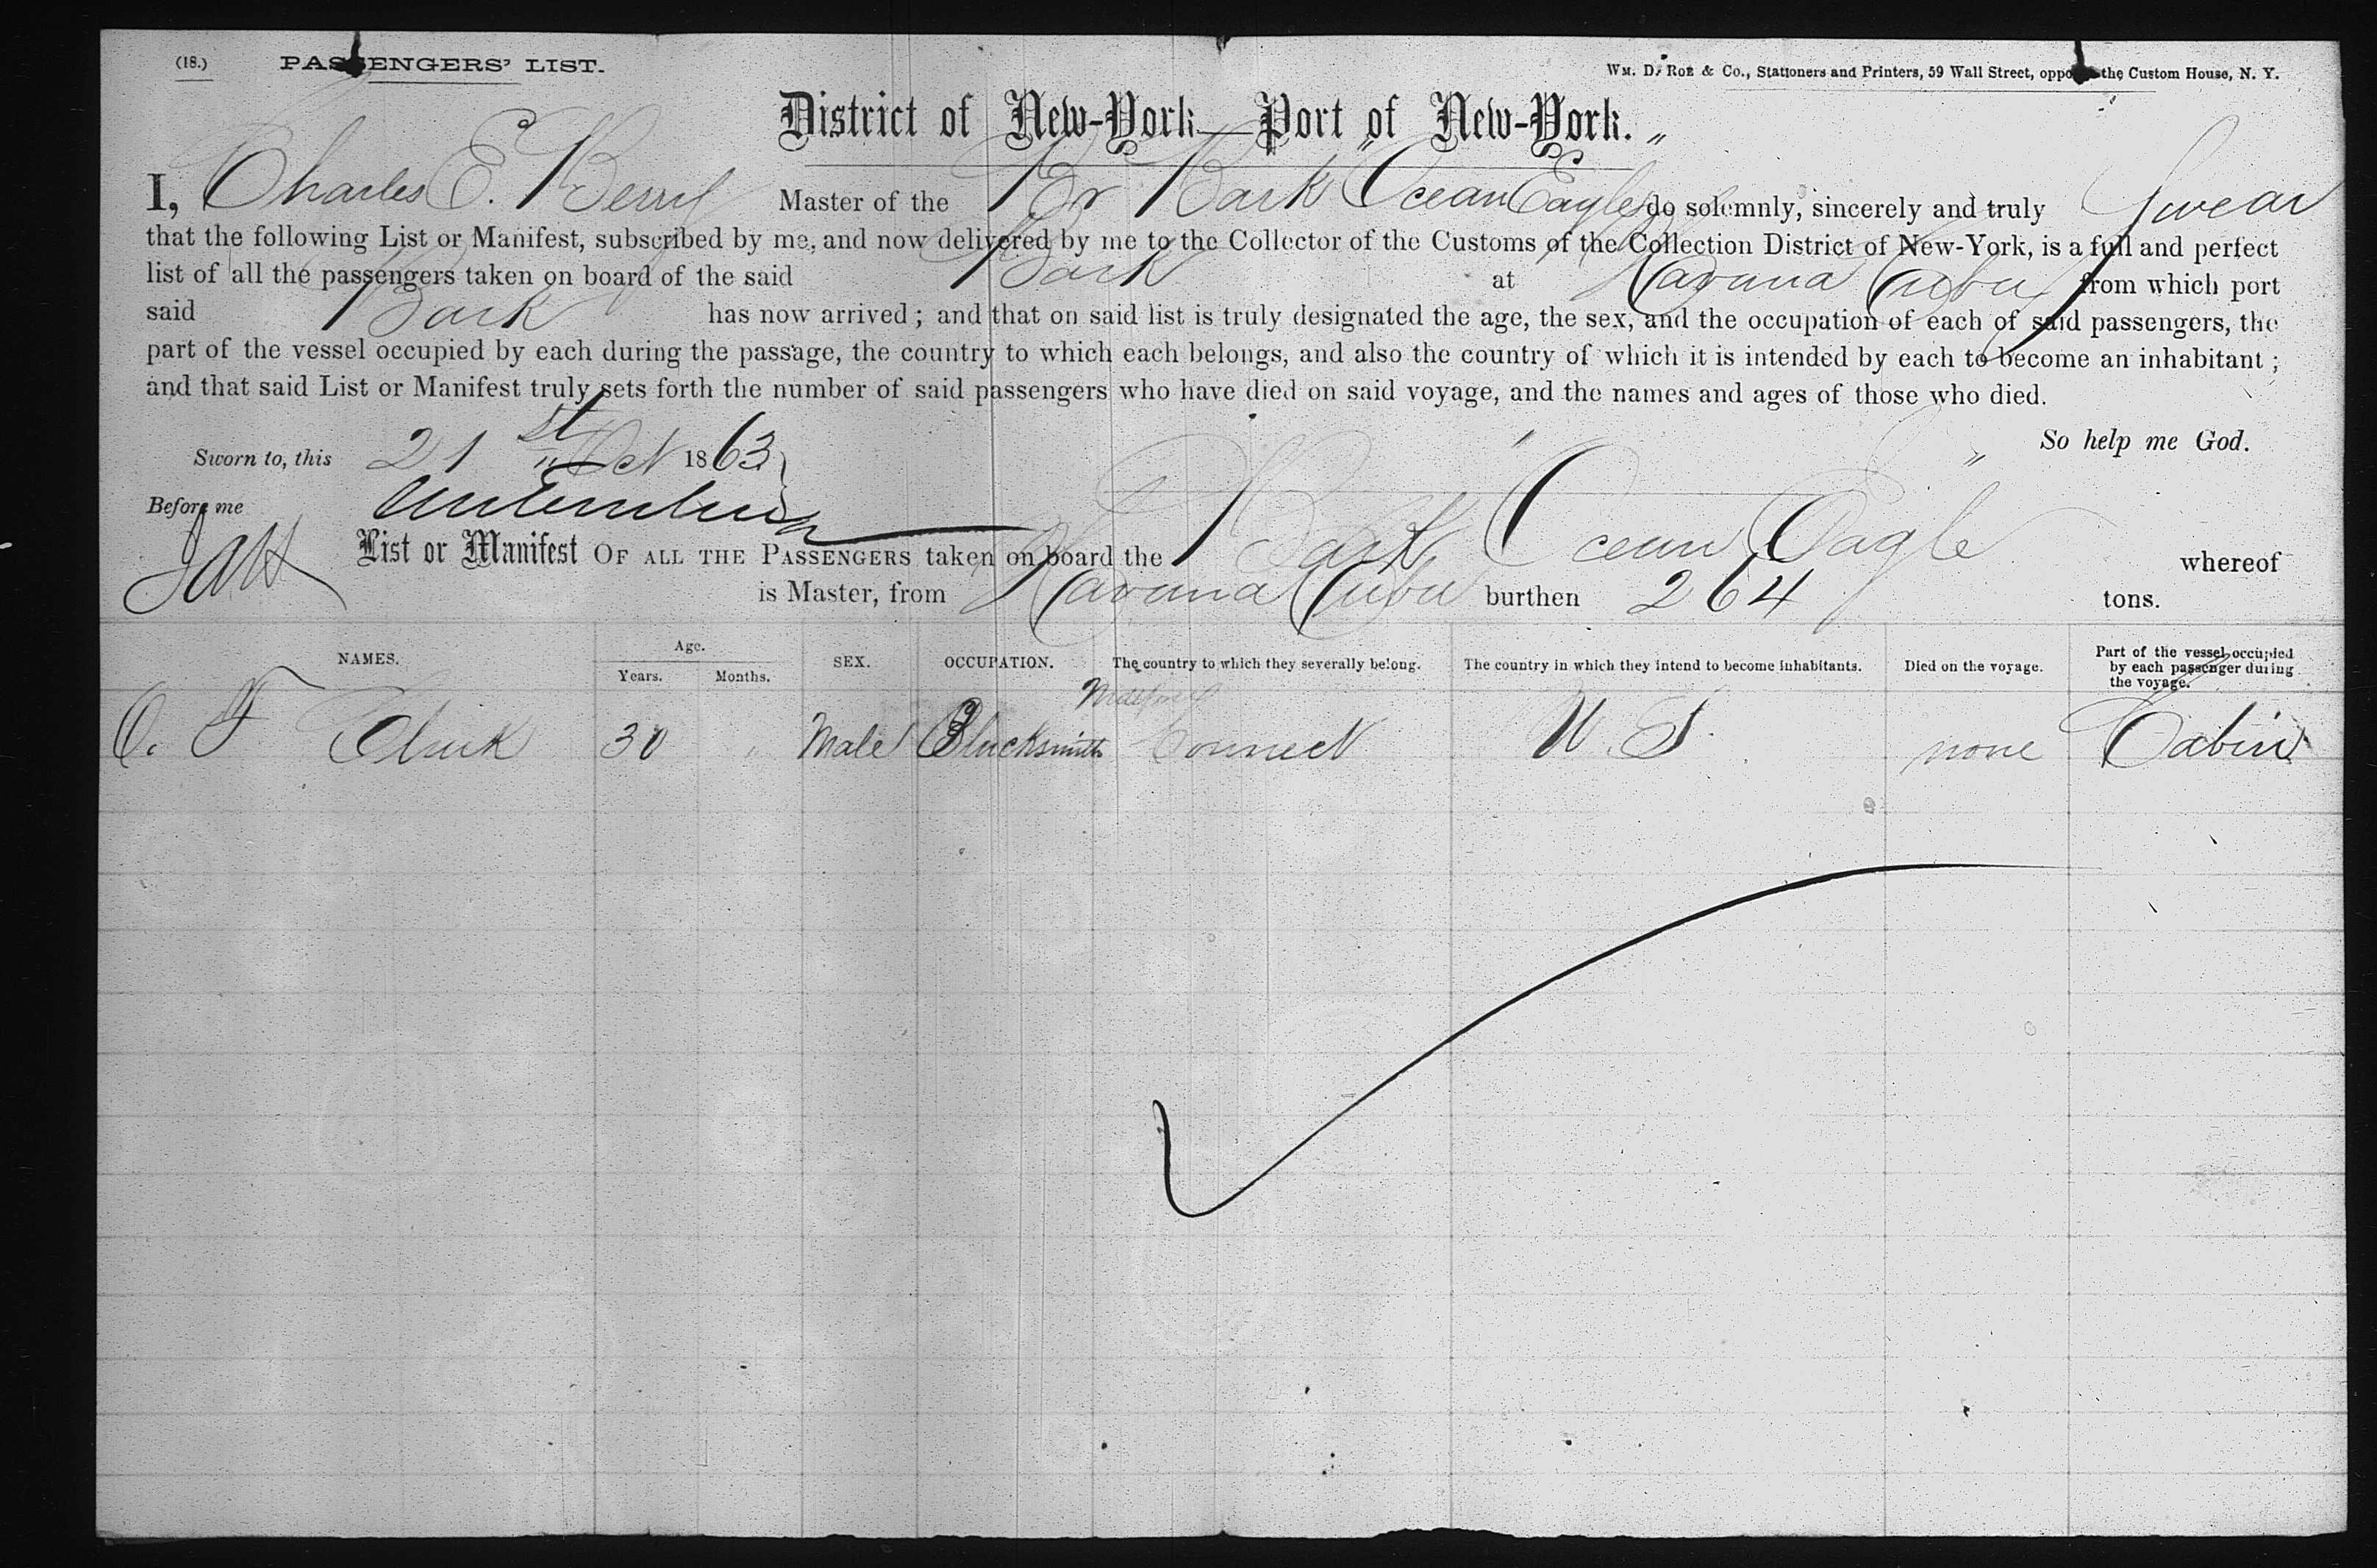 (18.) PASSENGERS' LIST.
WM. D. ROE & Co., Stationers and Printers, 59 Wall Street, opposite the Custom House, N. Y.
District of New-York—Port of New-York.
I, Charles E. Berry Master of the Br Bark "Ocean Eagle" do solemnly, sincerely and truly Swear
that the following List or Manifest, subscribed by me, and now delivered by me to the Collector of the Customs of the Collection District of New-York, is a full and perfect
list of all the passengers taken on board of the said Bark at Havana Cuba from which port
said Bark has now arrived; and that on said list is truly designated the age, the sex, and the occupation of each of said passengers, the
part of the vessel occupied by each during the passage, the country to which each belongs, and also the country of which it is intended by each to become an inhabitant;
and that said List or Manifest truly sets forth the number of said passengers who have died on said voyage, and the names and ages of those who died.
So help me God.
Sworn to, this 21st Oct 1863
Before me
List or Manifest OF ALL THE PASSENGERS taken on board the Bark "Ocean Eagle" whereof
is Master, from Havana Cuba burthen 264 tons.
NAMES. Age. Years. Months. SEX. OCCUPATION. The country to which they severally belong. The country in which they intend to become inhabitants. Died on the voyage. Part of the vessel occupied by each passenger during the voyage.
O. F Clark 30 " Male Blacksmith Connect U.S. none Cabin